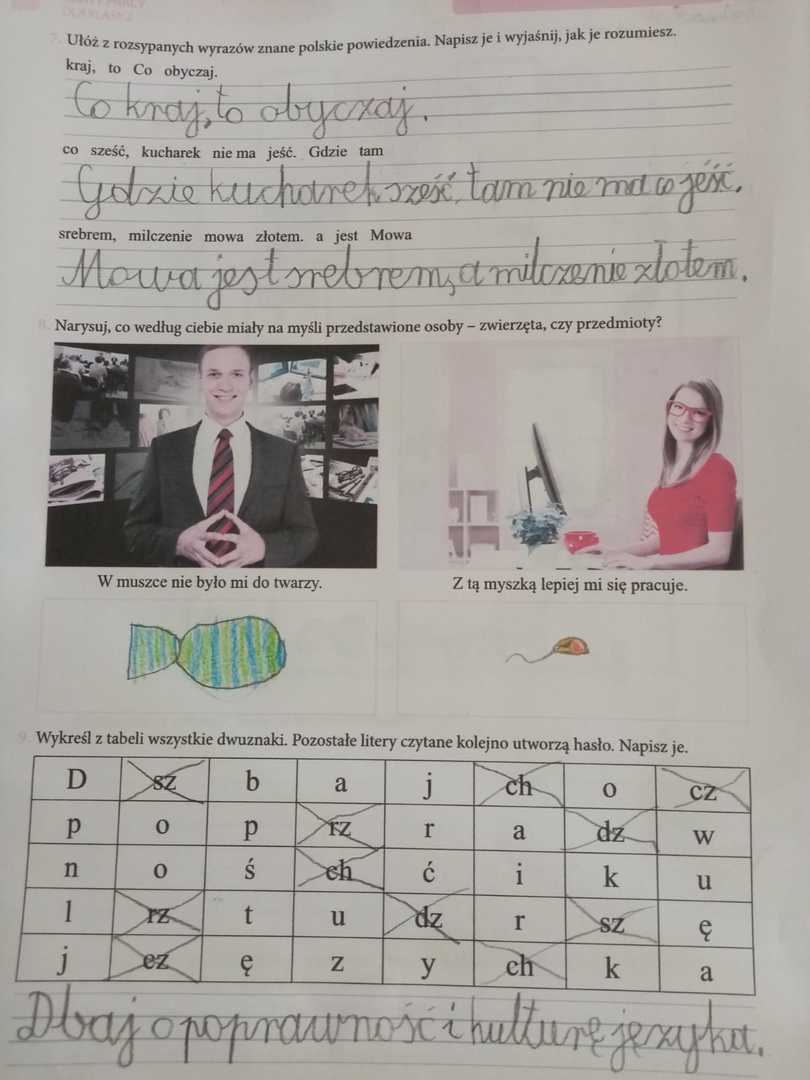 7. Ułóż z rozsypanych wyrazów znane polskie powiedzenia. Napisz je i wyjaśnij, jak je rozumiesz.
kraj, to Co obyczaj.
Co kraj, to obyczaj.
co sześć, kucharek nie ma jeść. Gdzie tam
Gdzie kucharek sześć, tam nie ma co jeść.
srebrem, milczenie mowa złotem. a jest Mowa
Mowa jest srebrem, a milczenie złotem.
8. Narysuj, co według ciebie miały na myśli przedstawione osoby – zwierzęta, czy przedmioty?
W muszce nie było mi do twarzy.
Z tą myszką lepiej mi się pracuje.
9. Wykreśl z tabeli wszystkie dwuznaki. Pozostałe litery czytane kolejno utworzą hasło. Napisz je.
D sz b a j ch o cz
p o p rz r a dz w
n o ś ch ć i k u
l rz t u dz r sz ę
j cz ę z y ch k a
Dbaj o poprawność i kulturę języka.